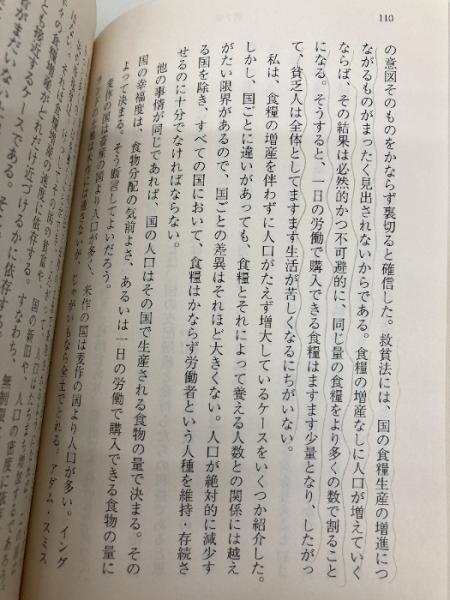 110
の意図そのものをかならず裏切ると確信した。救貧法には、国の食糧生産の増進につ
ながるものがまったく見出されないからである。食糧の増産なしに人口が増えていく
ならば、その結果は必然的かつ不可避的に、同じ量の食糧をより多くの数で割ること
になる。そうすると、一日の労働で購入できる食糧はますます少量となり、したがっ
て、貧乏人は全体としてますます生活が苦しくなるにちがいない。
私は、食糧の増産を伴わずに人口がたえず増大しているケースをいくつか紹介した。
しかし、国ごとに違いがあっても、食糧とそれによって養える人数との関係には越え
がたい限界があるので、国ごとの差異はそれほど大きくない。人口が絶対的に減少す
る国を除き、すべての国において、食糧はかならず労働者という人種を維持・存続さ
せるのに十分でなければならない。
他の事情が同じであれば、国の人口はその国で生産される食物の量で決まる。その
国の幸福度は、食物分配の気前よさ、あるいは一日の労働で購入できる食物の量に
よって決まる。そう断言してよいだろう。
麦作の国は牧畜の国より人口が多く、米作の国は麦作の国より人口が多い。イング
米作に適さないが、じゃがいもなら全土でとれる。アダム・スミス